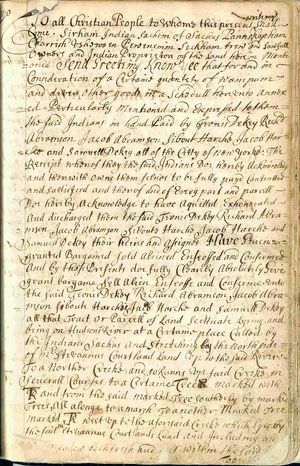 To all Christian People to whome this present writeing shall
Come, Sirham Indian Sachem of Sachus
Owners and Indian Proprietors of the Land herein Menti
oned Send Greeting Know Yee that for and in
Consideration of a Certaine quantety of Wampum
and divers other goods in a Schedull hereunto Annex
ed Perticularly Mentioned and Expressed to them
the said Indians in hand Paid by Teunis Dekey Richard
Abramson Jacob Abramson Sibout Harcks Jacob Har
cks and Samuell Dekey all of the Citty of New Yorke The
Receipt whereof they the said Indians Doe hereby Acknowledg
and therewith owne them selves to be fully paye Contented
and sattisfied and thereof and of Every part and parcell
Doe hereby Acknowledge to have Aquitted Exonorated
And discharged them the said Teunis Dekey Richard Abra
mson Jacob Abramson Sibout Harcks Jacob Harcks and
Samuell Dekey their heirs and Assignes Have Given
granted Bargained sold Aliened Enfeoffed and Confirmed
And by these Presents doe fully Clearly Absolutely Give
grant bargaine Sell Alien Enfeoffe and Confirme unto
the said Teunis Dekey Richard Abramson Jacob Abra
mson Sibout Harcks Jacob Harcks and Samuell Dekey
all that Tract or Parcell of Land Scittuate Lyeing and
being on Hudsons River at a Certaine place Called by
the Indians Sachus and Stretching by the North side
of Mr. Stevanus Courtland Land up to the said River
To a Norther Creeke and soe runs up said Creeke in
Severall Courses to a Certaine Tree marked with
R and from the said marked Tree southerly by marked
Trees all alonge to a marsh To another Marked Tree
marked
the south Stevannus Courtlands Land and Including all